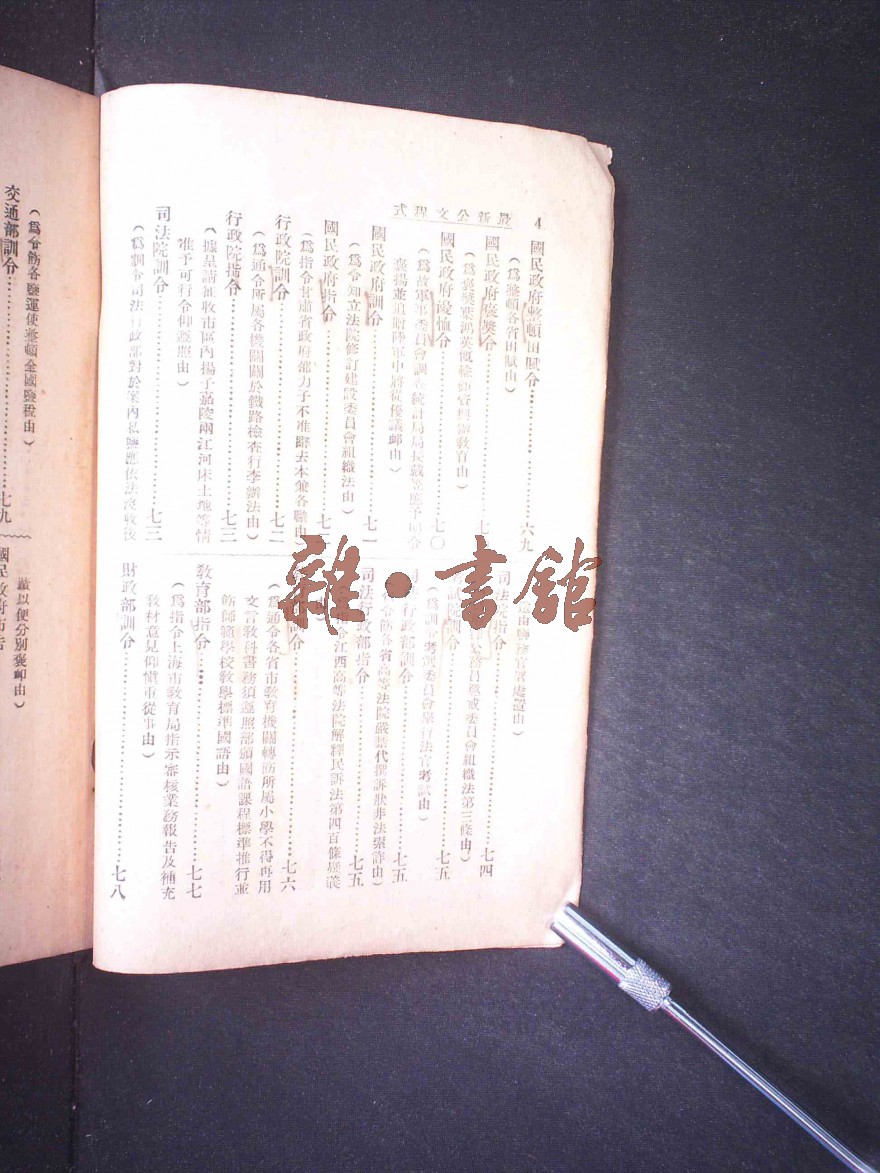 4
最新公文程式
國民政府整頓田賦令……六九
(為整頓各省田賦由)
國民政府褒獎令……七
國民政府優恤令……七〇
(為故軍事委員會調查統計局局長戴笠應予明令
褒揚並追贈陸軍中將從優議卹由)
國民政府訓令……七一
(為令知立法院修訂建設委員會組織法由)
國民政府指令……七
(為指令甘肅省政府邵力子不准辭去本兼各職由
行政院訓令……七二
(為通令所屬各機關關於鐵路檢查行李辦法由)
行政院指令……七三
(據呈請征收市區內揚子嘉陵兩江河床土地等情
准予可行令仰遵照由)
司法院訓令……七三
(為訓令司法行政部對於案內私鹽應依法沒收後
鹽務官署處置由)
司法院指令……七四
公務員懲戒委員會組織法第三條由)
考試院訓令……七五
(為訓令考選委員會舉行法官考試由)
司法行政部訓令……七五
令飭各省高等法院嚴禁代撰訴狀非法索詐由)
司法行政部指令……七五
令江西高等法院解釋民訴法第四百條疑義
訓令……七六
(為通令各省市教育機關轉飭所屬小學不得再用
文言教科書務須遵照部頒國語課程標準推行並
飭師範學校教學標準國語由)
教育部指令……七七
(為指令上海市教育局指示審核業務報告及補充
教材意見仰慎重從事由)
財政部訓令……七八
(為令飭各鹽運使整頓全國鹽稅由)
交通部訓令……七九
以便分別褒卹由)
國民政府布告
雜·書館